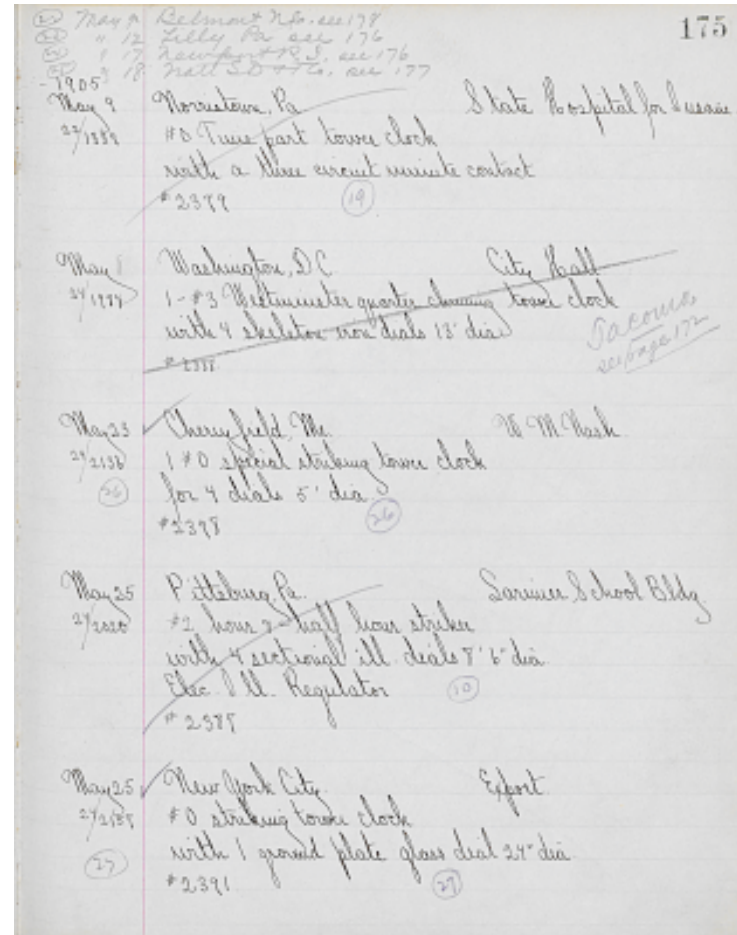 175
May 9 Belmont N.S. see 178
" 12 Lilly Pa see 176
" 17 Newport R.I. see 176
" 18 Natl S.D. & Co. see 177
1905
May 9 Norristown, Pa. State Hospital for Insane
#0 Time part tower clock
with a three circuit minute contact
#2379 19
May 8 Washington, D.C. City Hall
1 - #3 Westminster quarter chiming tower clock
with 4 skeleton iron dials 13' dia
Tacoma
see page 172
May 23 Cherryfield, Me. W M Nash
24/2136 1 #0 special striking tower clock
26 for 4 dials 5' dia. 26
#2398
May 25 Pittsburg, Pa. School Bldg
24/2020 #2 hour & half hour striker
with 4 sectional ill. dials 8' 6" dia
Elec. Ill. Regulator 10
May 25 New York City. Export.
#0 striking tower clock
27 with 1 ground plate glass dial 24" dia
#2391 27